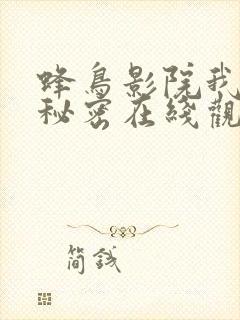 蜂鳥影院我
秘密在綫觀
簡錢